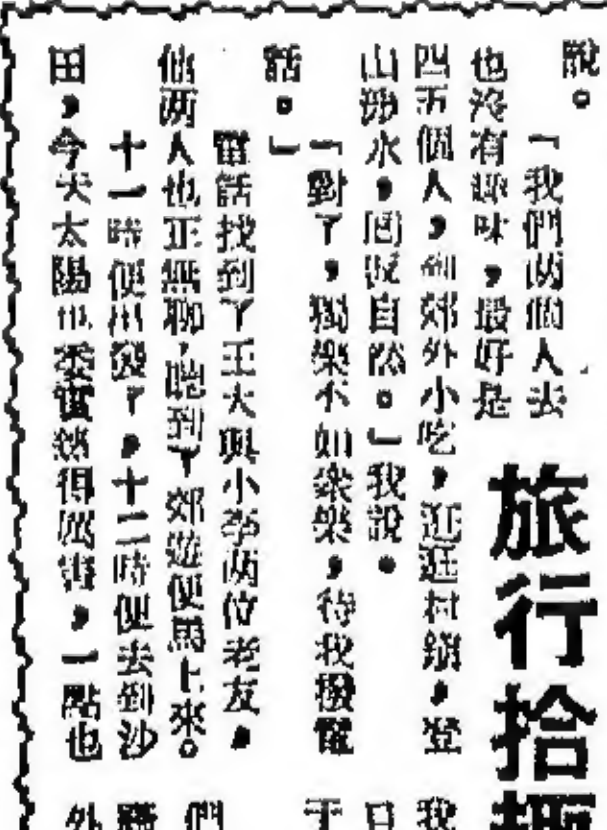 說。
「我們兩個人去
也沒有趣味，最好是
四五個人，到郊外小吃，逛逛村鎮，登
山涉水，回返自然。」我說。
「對了，獨樂不如衆樂，待我撥電
話。」
電話找到了王大與小李兩位老友，
他兩人也正無聊，聽到了郊遊便馬上來。
十一時便出發了，十二時便去到沙
田，今天太陽也委實熱得厲害，一點也
旅行拾趣
我
日
于
們
外